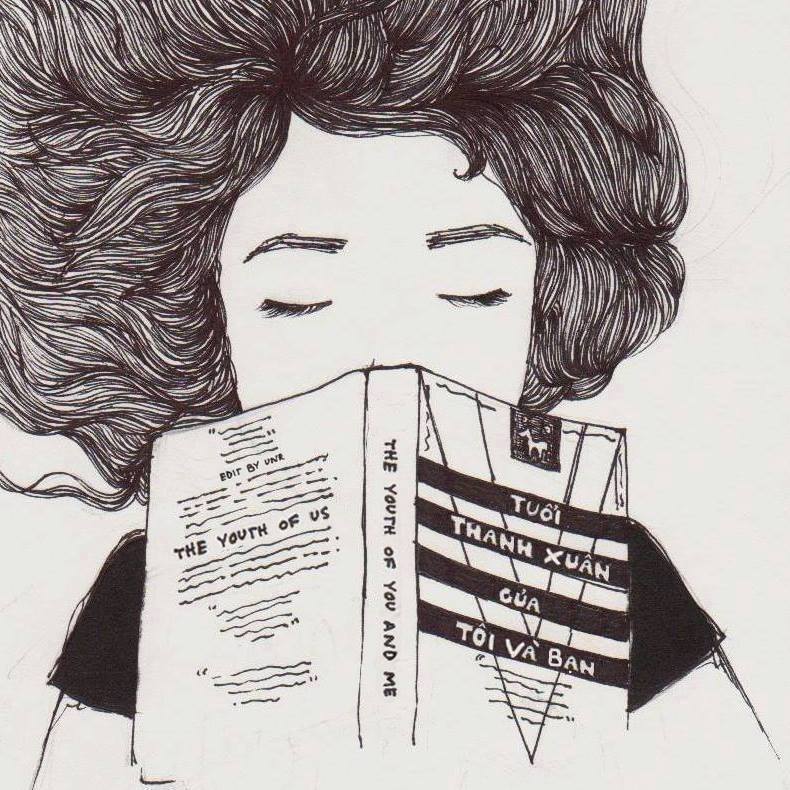 EDIT BY UNR
THE YOUTH OF US
THE YOUTH OF YOU AND ME
TUỔI
THANH XUÂN
CỦA
TÔI VÀ BẠN